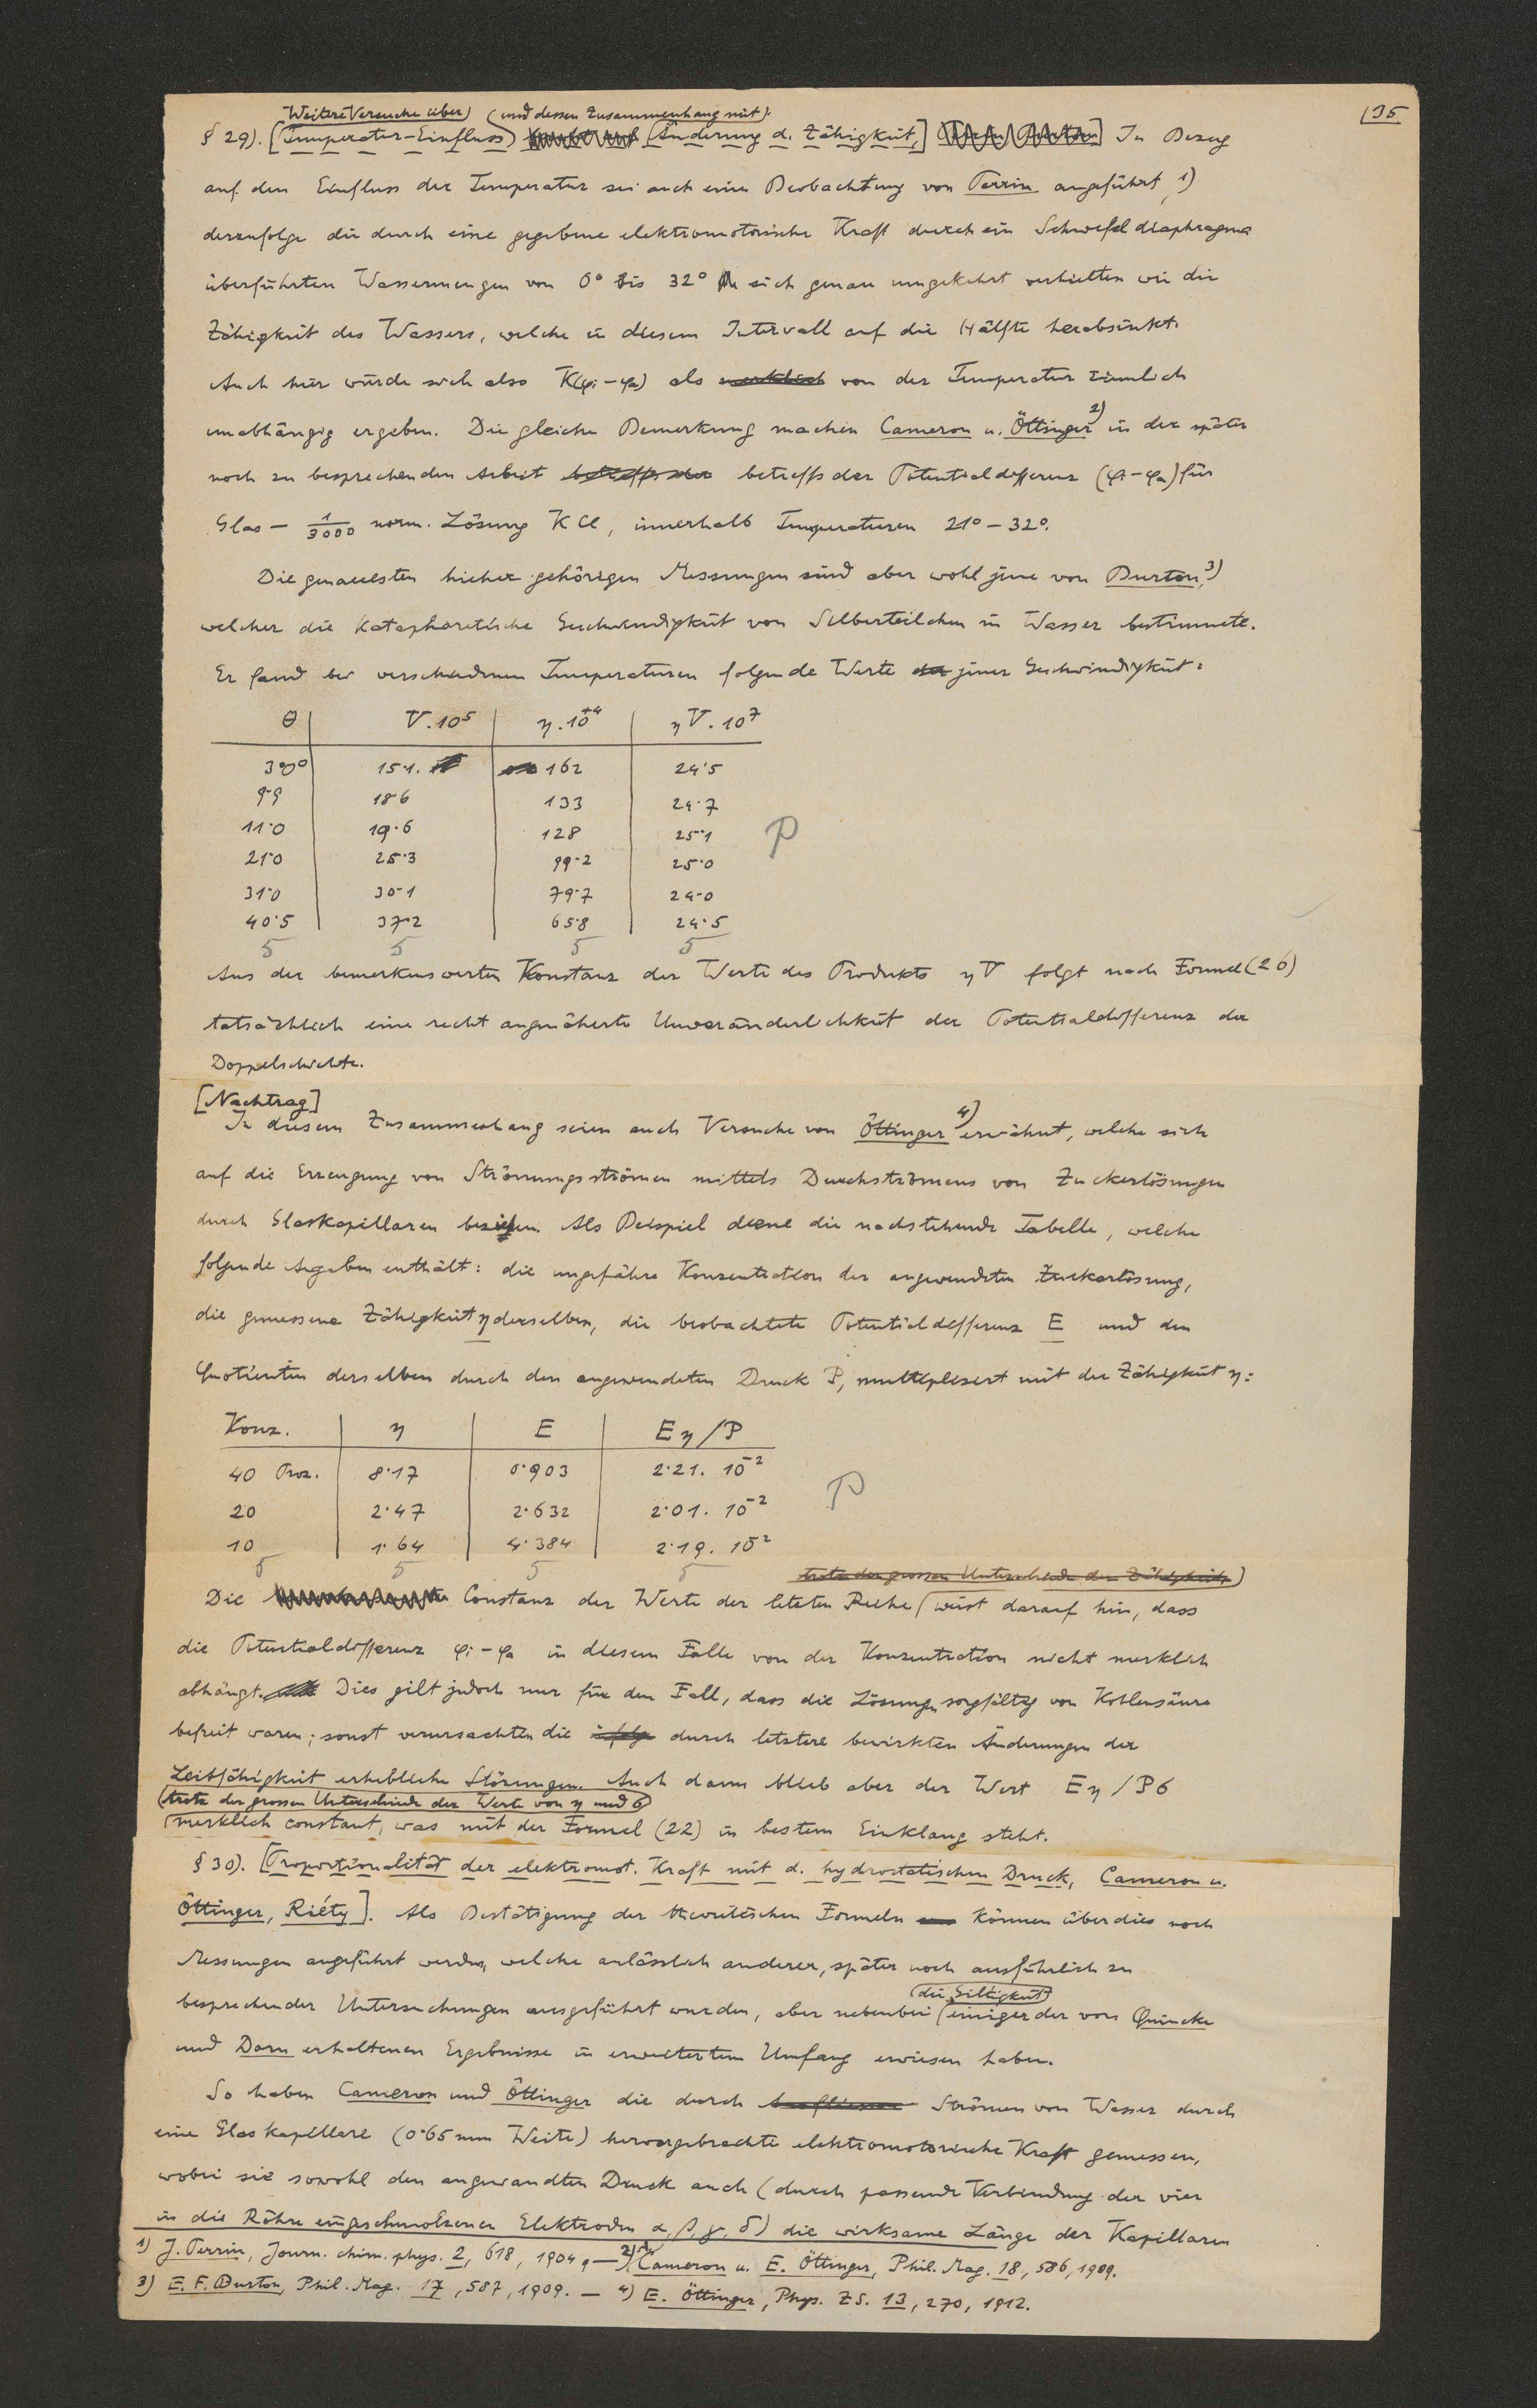 135
Weitere Versuche über (und dessen Zusammenhang mit)
§ 29). [Temperatur-Einfluss) [Änderung d. Zähigkeit,] In Bezug
auf den Einfluss der Temperatur sei auch eine Beobachtung von Perrin angeführt, 1)
derzufolge die durch eine gegebene elektromotorische Kraft durch ein Schwefeldiaphragma
überführten Wassermengen von 0° bis 32° sich genau umgekehrt verhielten wie die
Zähigkeit des Wassers, welche in diesem Intervall auf die Hälfte herabsinkt.
Auch hier würde sich also K(φi-φa) als von der Temperatur ziemlich
unabhängig ergeben. Die gleiche Bemerkung machen Cameron u. Öttinger 2) in der später
noch zu besprechenden Arbeit betreffs der betreffs der Potentialdifferenz (φi-φa) für
Glas — 1/3000 norm. Lösung KCl, innerhalb Temperaturen 21°-32°.
Die genauesten hieher gehörigen Messungen sind aber wohl jene von Burton, 3)
welcher die kataphoretische Geschwindigkeit von Silberteilchen in Wasser bestimmte.
Er fand bei verschiedenen Temperaturen folgende Werte der jener Geschwindigkeit:
θ V.10⁵ η.10⁺⁴ ηV.10⁷
3·0° 15·1. 162 24·5
9·9 18·6 133 24·7
11·0 19·6 128 25·1
21·0 25·3 99·2 25·0
31·0 30·1 79·7 24·0
40·5 37·2 65·8 24·5
5 5 5 5
Aus der bemerkenswerten Konstanz der Werte des Produkts ηV folgt nach Formel (26)
tatsächlich eine recht angenäherte Unveränderlichkeit der Potentialdifferenz der
Doppelschichte.
[Nachtrag]
In diesem Zusammenhang seien auch Versuche von Öttinger 4) erwähnt, welche sich
auf die Erzeugung von Strömungsströmen mittels Durchströmens von Zuckerlösungen
durch Glaskapillaren beziehen. Als Beispiel diene die nachstehende Tabelle, welche
folgende Angaben enthält: die ungefähre Konzentration der angewendeten Zuckerlösung,
die gemessene Zähigkeit η derselben, die beobachtete Potentialdifferenz E und den
Quotienten derselben durch den angewendeten Druck P, multipliziert mit der Zähigkeit η:
Konz. η E Eη/P
40 Proz. 8·17 0·903 2·21. 10⁻²
20 2·47 2·632 2·01. 10⁻²
10 1·64 4·384 2·19. 10⁻²
5 5 5 5
trotz der grossen Unterschiede der Zähigkeit)
Die Constanz der Werte der letzten Reihe (weist darauf hin, dass
die Potentialdifferenz φi-φa in diesem Falle von der Konzentration nicht merklich
abhängt. Dies gilt jedoch nur für den Fall, dass die Lösungen sorgfältig von Kohlensäure
befreit waren; sonst verursachten die infolge durch letztere bewirkten Änderungen der
Leitfähigkeit erhebliche Störungen. Auch dann blieb aber der Wert Eη/Pσ
(trotz der grossen Unterschiede der Werte von η und σ)
(merklich constant, was mit der Formel (22) in bestem Einklang steht.
§ 30). [Proportionalität der elektromot. Kraft mit d. hydrostatischen Druck, Cameron u.
Öttinger, Riéty]. Als Bestätigung der theoretischen Formeln können überdies noch
Messungen angeführt werden, welche anlässlich anderer, später noch ausführlich zu
(die Giltigkeit)
besprechender Untersuchungen ausgeführt wurden, aber nebenbei (einiger der von Quincke
und Dorn erhaltenen Ergebnisse in erweitertem Umfang erwiesen haben.
So haben Cameron und Öttinger die durch Strömen von Wasser durch
eine Glaskapillare (0·65 mm Weite) hervorgebrachte elektromotorische Kraft gemessen,
wobei sie sowohl den angewandten Druck auch (durch passende Verbindung der vier
in die Röhre eingeschmolzener Elektroden α, β, γ, δ) die wirksame Länge der Kapillaren
1) J. Perrin, Journ. chim. phys. 2, 618, 1904. — 2) Cameron u. E. Öttinger, Phil. Mag. 18, 586, 1909.
3) E. F. Burton, Phil. Mag. 17, 587, 1909. — 4) E. Öttinger, Phys. ZS. 13, 270, 1912.